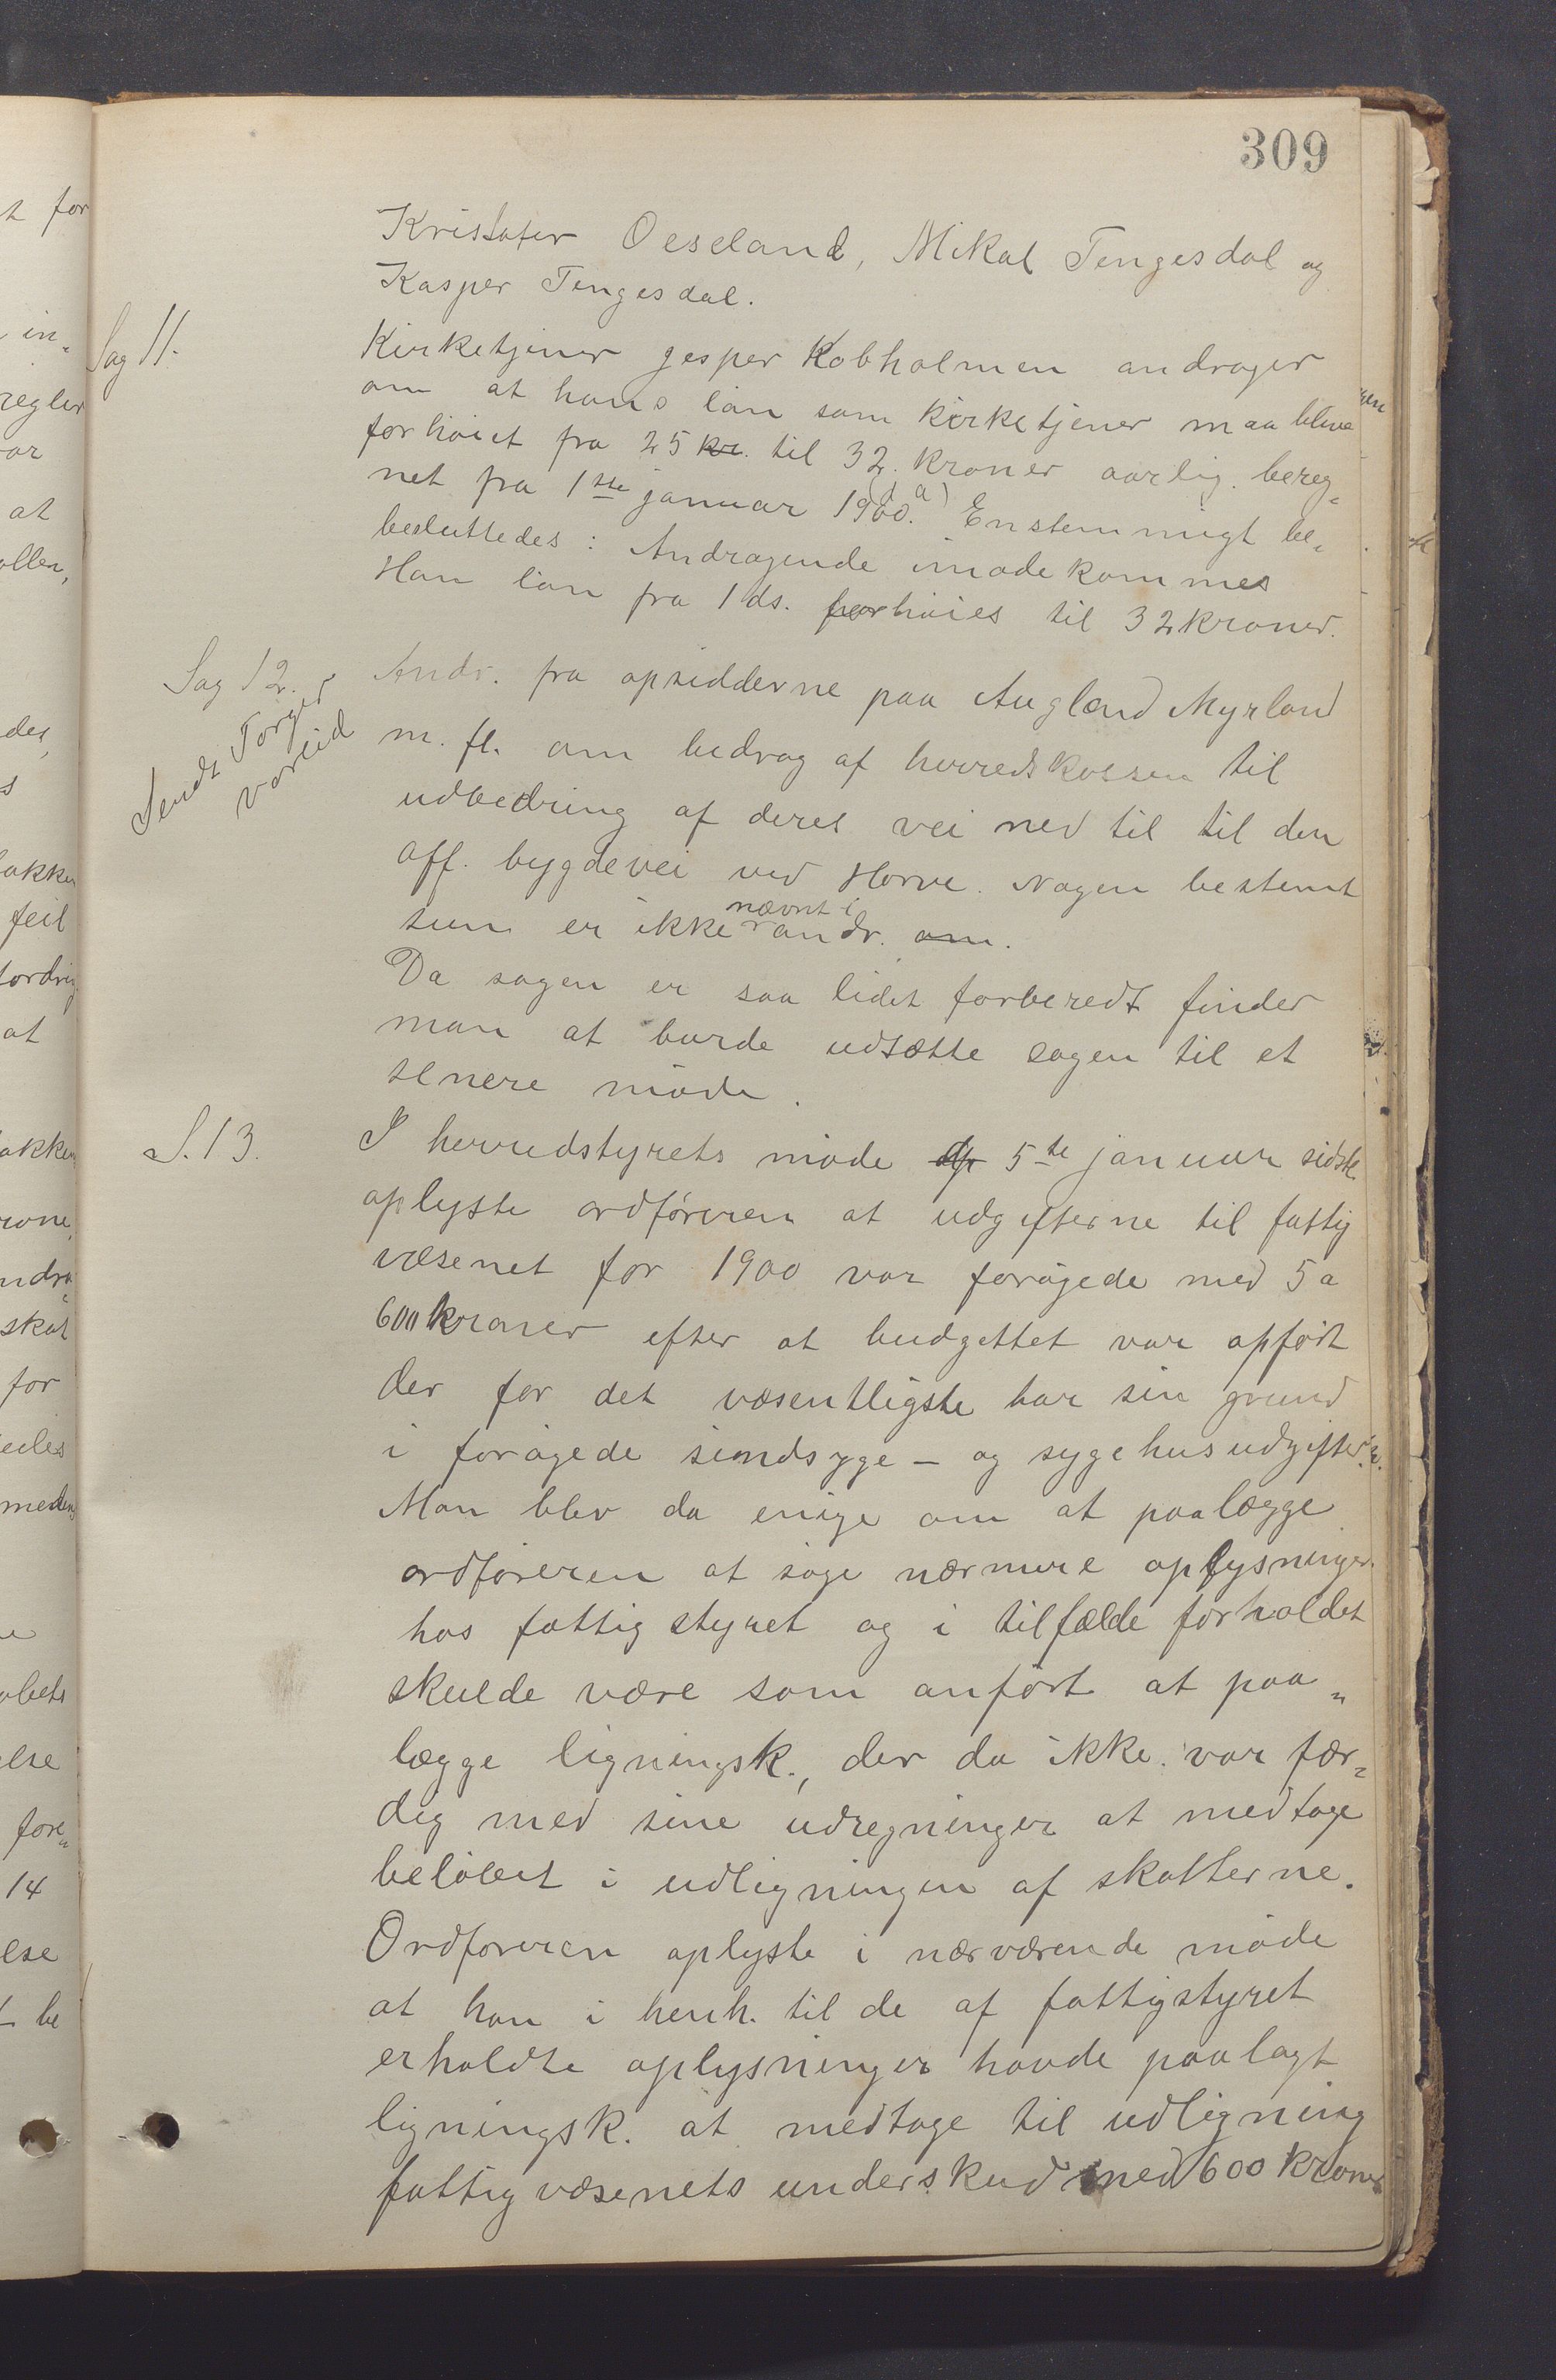 309
Kristofer Oeseland, Mikal Tengesdal og
Kasper Tengesdal.
Sag 11.
Kirketjener Jesper Kobholmen andrager
om at hans løn som kirketjener maa blive
forhøiet fra 25 kr. til 32 kroner aarlig bereg-
net fra 1ste januar 1900. (d. a) Enstemmigt be-
besluttedes: Andragende imødekommes
Han løn fra 1 ds. forhøies til 32 kroner.
Sag 12.
Sendt Torger
Vareid
Andr. fra opsidderne paa Augland Myrland
m. fl. om bidrag af herredskassen til
udbedring af deres vei ned til til den
off. bygdevei ved Horve. Nogen bestemt
sum er ikke nævnt i andr. om.
Da sagen er saa lidet forberedt finder
man at burde udsætte sagen til et
senere møde.
S. 13.
I herredstyrets møde 5te januar sidste
oplyste ordføreren at udgifterne til fattig
væsenet for 1900 var forøgede med 5 a
600 kroner efter at budgettet var opført
der for det væsentligste har sin grund
i forøgede sindsyge- og sygehusudgifter.
Man blev da enige om at paalægge
ordføreren at søge nærmere oplysninger
hos fattigstyret og i tilfælde forholdet
skulde være som anført at paa-
lægge ligningsk., der da ikke var fær-
dig med sine udregninger at medtage
beløbet i udligningen af skatterne.
Ordføreren oplyste i nærværende møde
at han i henh. til de af fattigstyret
erholdte oplysninger havde paalagt
ligningsk. at medtage til udligning
fattigvæsenets underskud med 600 kroner